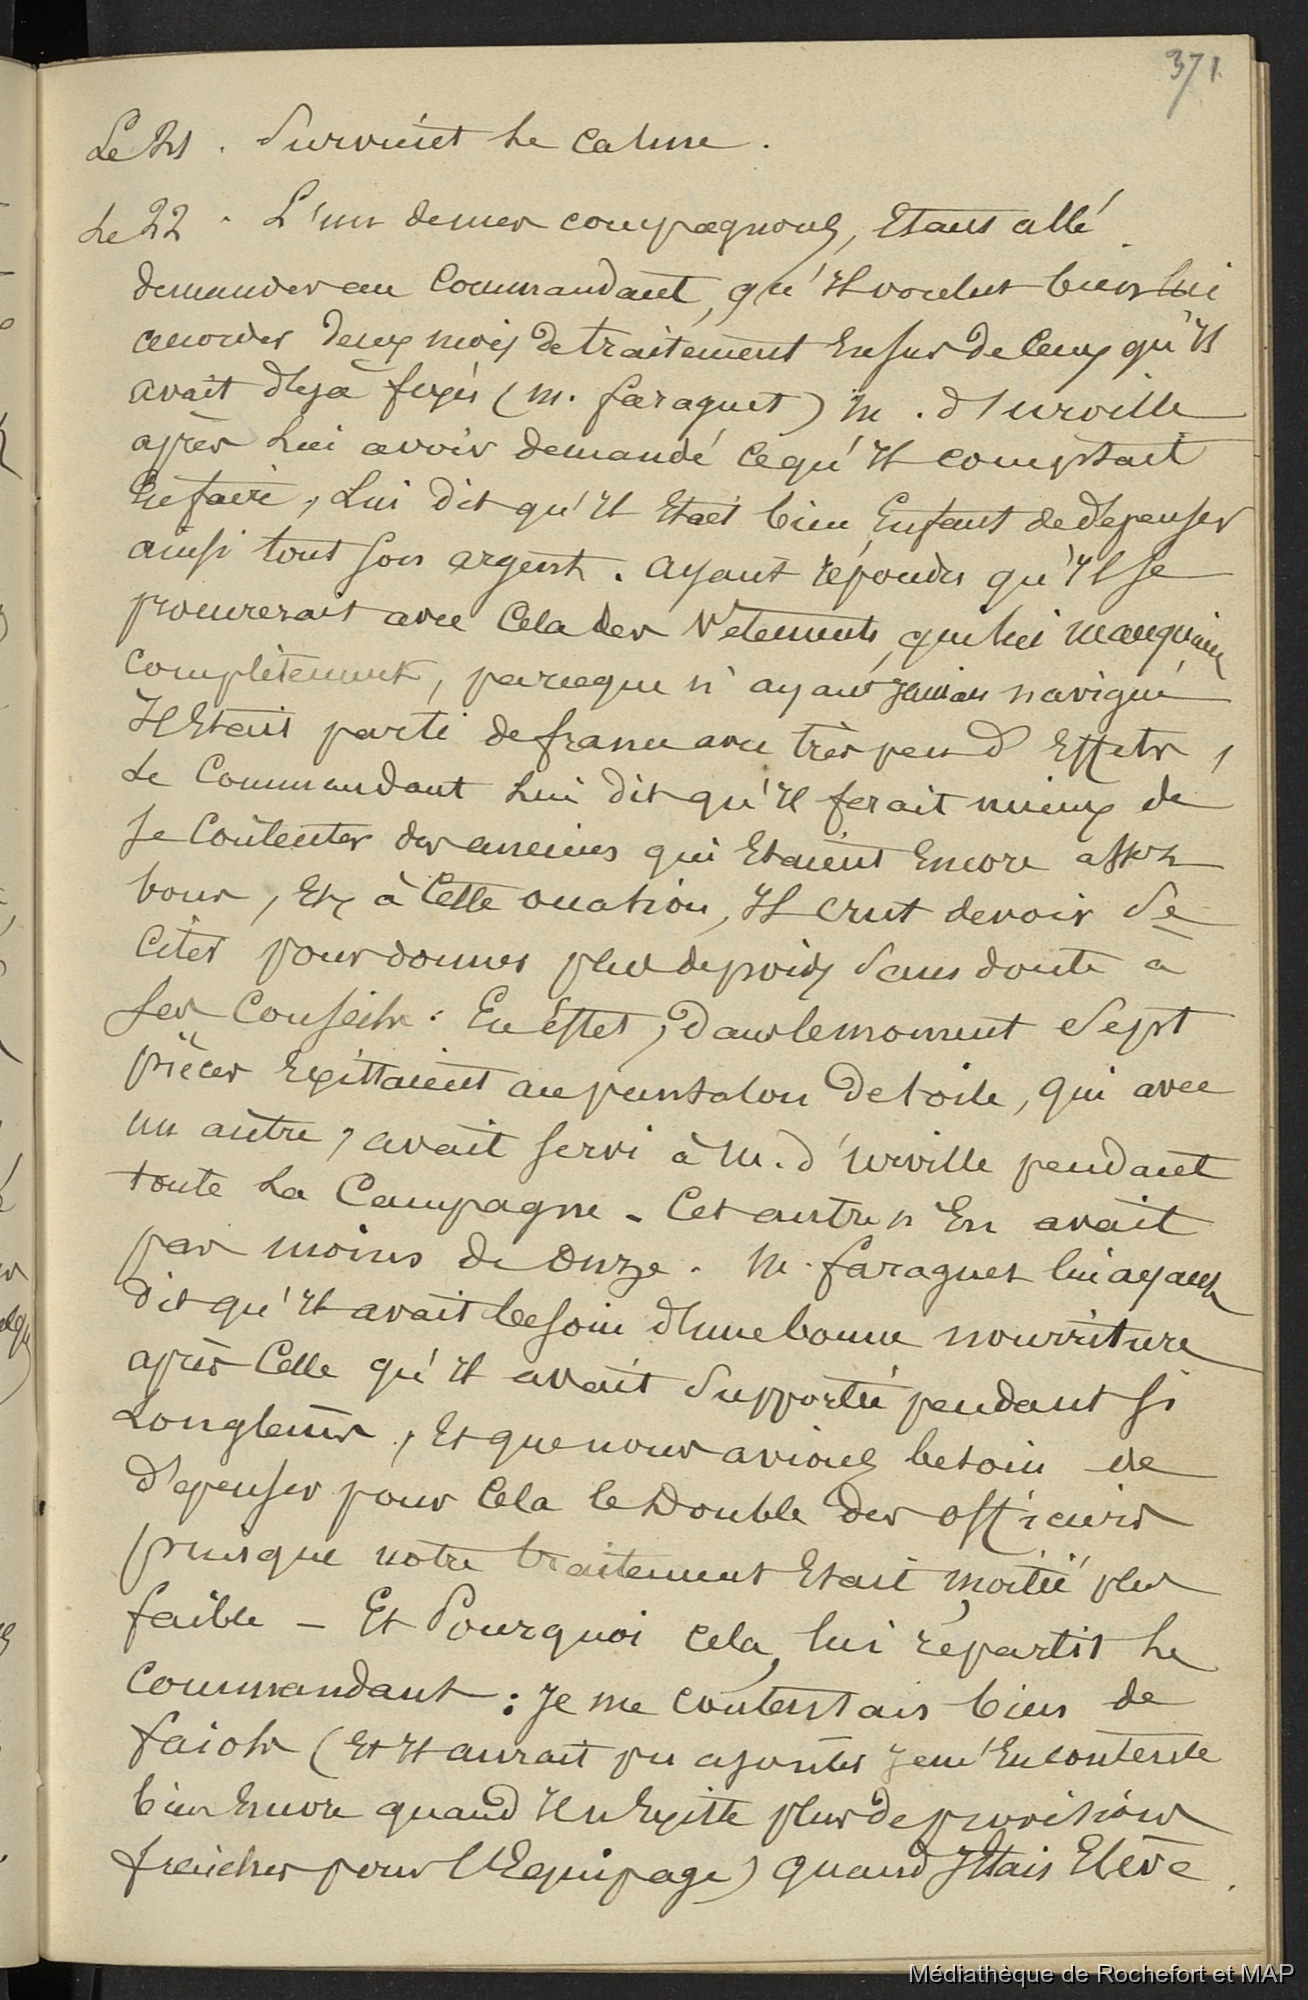 371
Le 21. Survint le calme.
Le 22. L'un de mes compagnons, Etant allé
demander au Commandant, qu'Il voulut bien lui
accorder deux mois de traitement En sus de Ceux qu'Il
avait déjà fixés (M. faraguet) M. d'urville
après Lui avoir demandé Ce qu'Il comptait
En faire, Lui dit qu'Il Etait bien Enfant de dépenser
ainsi tout son argent. Ayant répondu qu'Il se
procurerait avec Cela des Vêtements, qui lui manquaient
complètement, parceque n'ayant jamais navigué
Il Etait parti de france avec très peu d'Effets,
Le Commandant Lui dit qu'Il ferait mieux de
se Contenter des anciens qui Etaient Encore assez
bons, Et, à Cette occasion, Il crut devoir Se
Citer pour donner plus de poids Sans doute à
ses Conseils : En Effet, Dans le moment Sept
pièces Existaient au pantalon de toile, qui avec
un autre, avait servi à M. d'urville pendant
toute La Campagne. Cet autre n'En avait
pas moins de Onze. M. faraguet lui ayant
dit qu'Il avait besoin d'une bonne nourriture
après Celle qu'Il avait Supportée pendant si
Longtems, Et que nous avions besoin de
dépenser pour Cela le Double des officiers
puisque notre traitement Etait moitié plus
faible – Et Pourquoi cela, lui répartit Le
Commandant : Je me contentais bien de
faiols (Et Il aurait pu ajouter je m'En contente
bien Encore quand Il n'Existe plus de provisions
fraiches pour l'Equipage) quand J'Etais Elève
Médiathèque de Rochefort et MAP